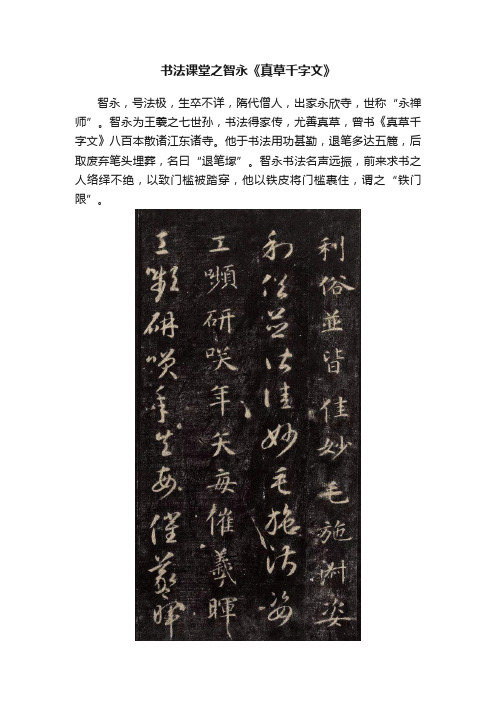 书法课堂之智永《真草千字文》
智永，号法极，生卒不详，隋代僧人，出家永欣寺，世称“永禅
师”。智永为王羲之七世孙，书法得家传，尤善真草，曾书《真草千
字文》八百本散诸江东诸寺。他于书法用功甚勤，退笔多达五簏，后
取废弃笔头埋葬，名曰“退笔冢”。智永书法名声远振，前来求书之
人络绎不绝，以致门槛被踏穿，他以铁皮将门槛裹住，谓之“铁门
限”。
利俗並皆佳妙毛施淑姿
利俗並皆佳妙毛施淑姿
工嚬研咲年矢每催羲暉
工嚬研咲年矢每催羲暉